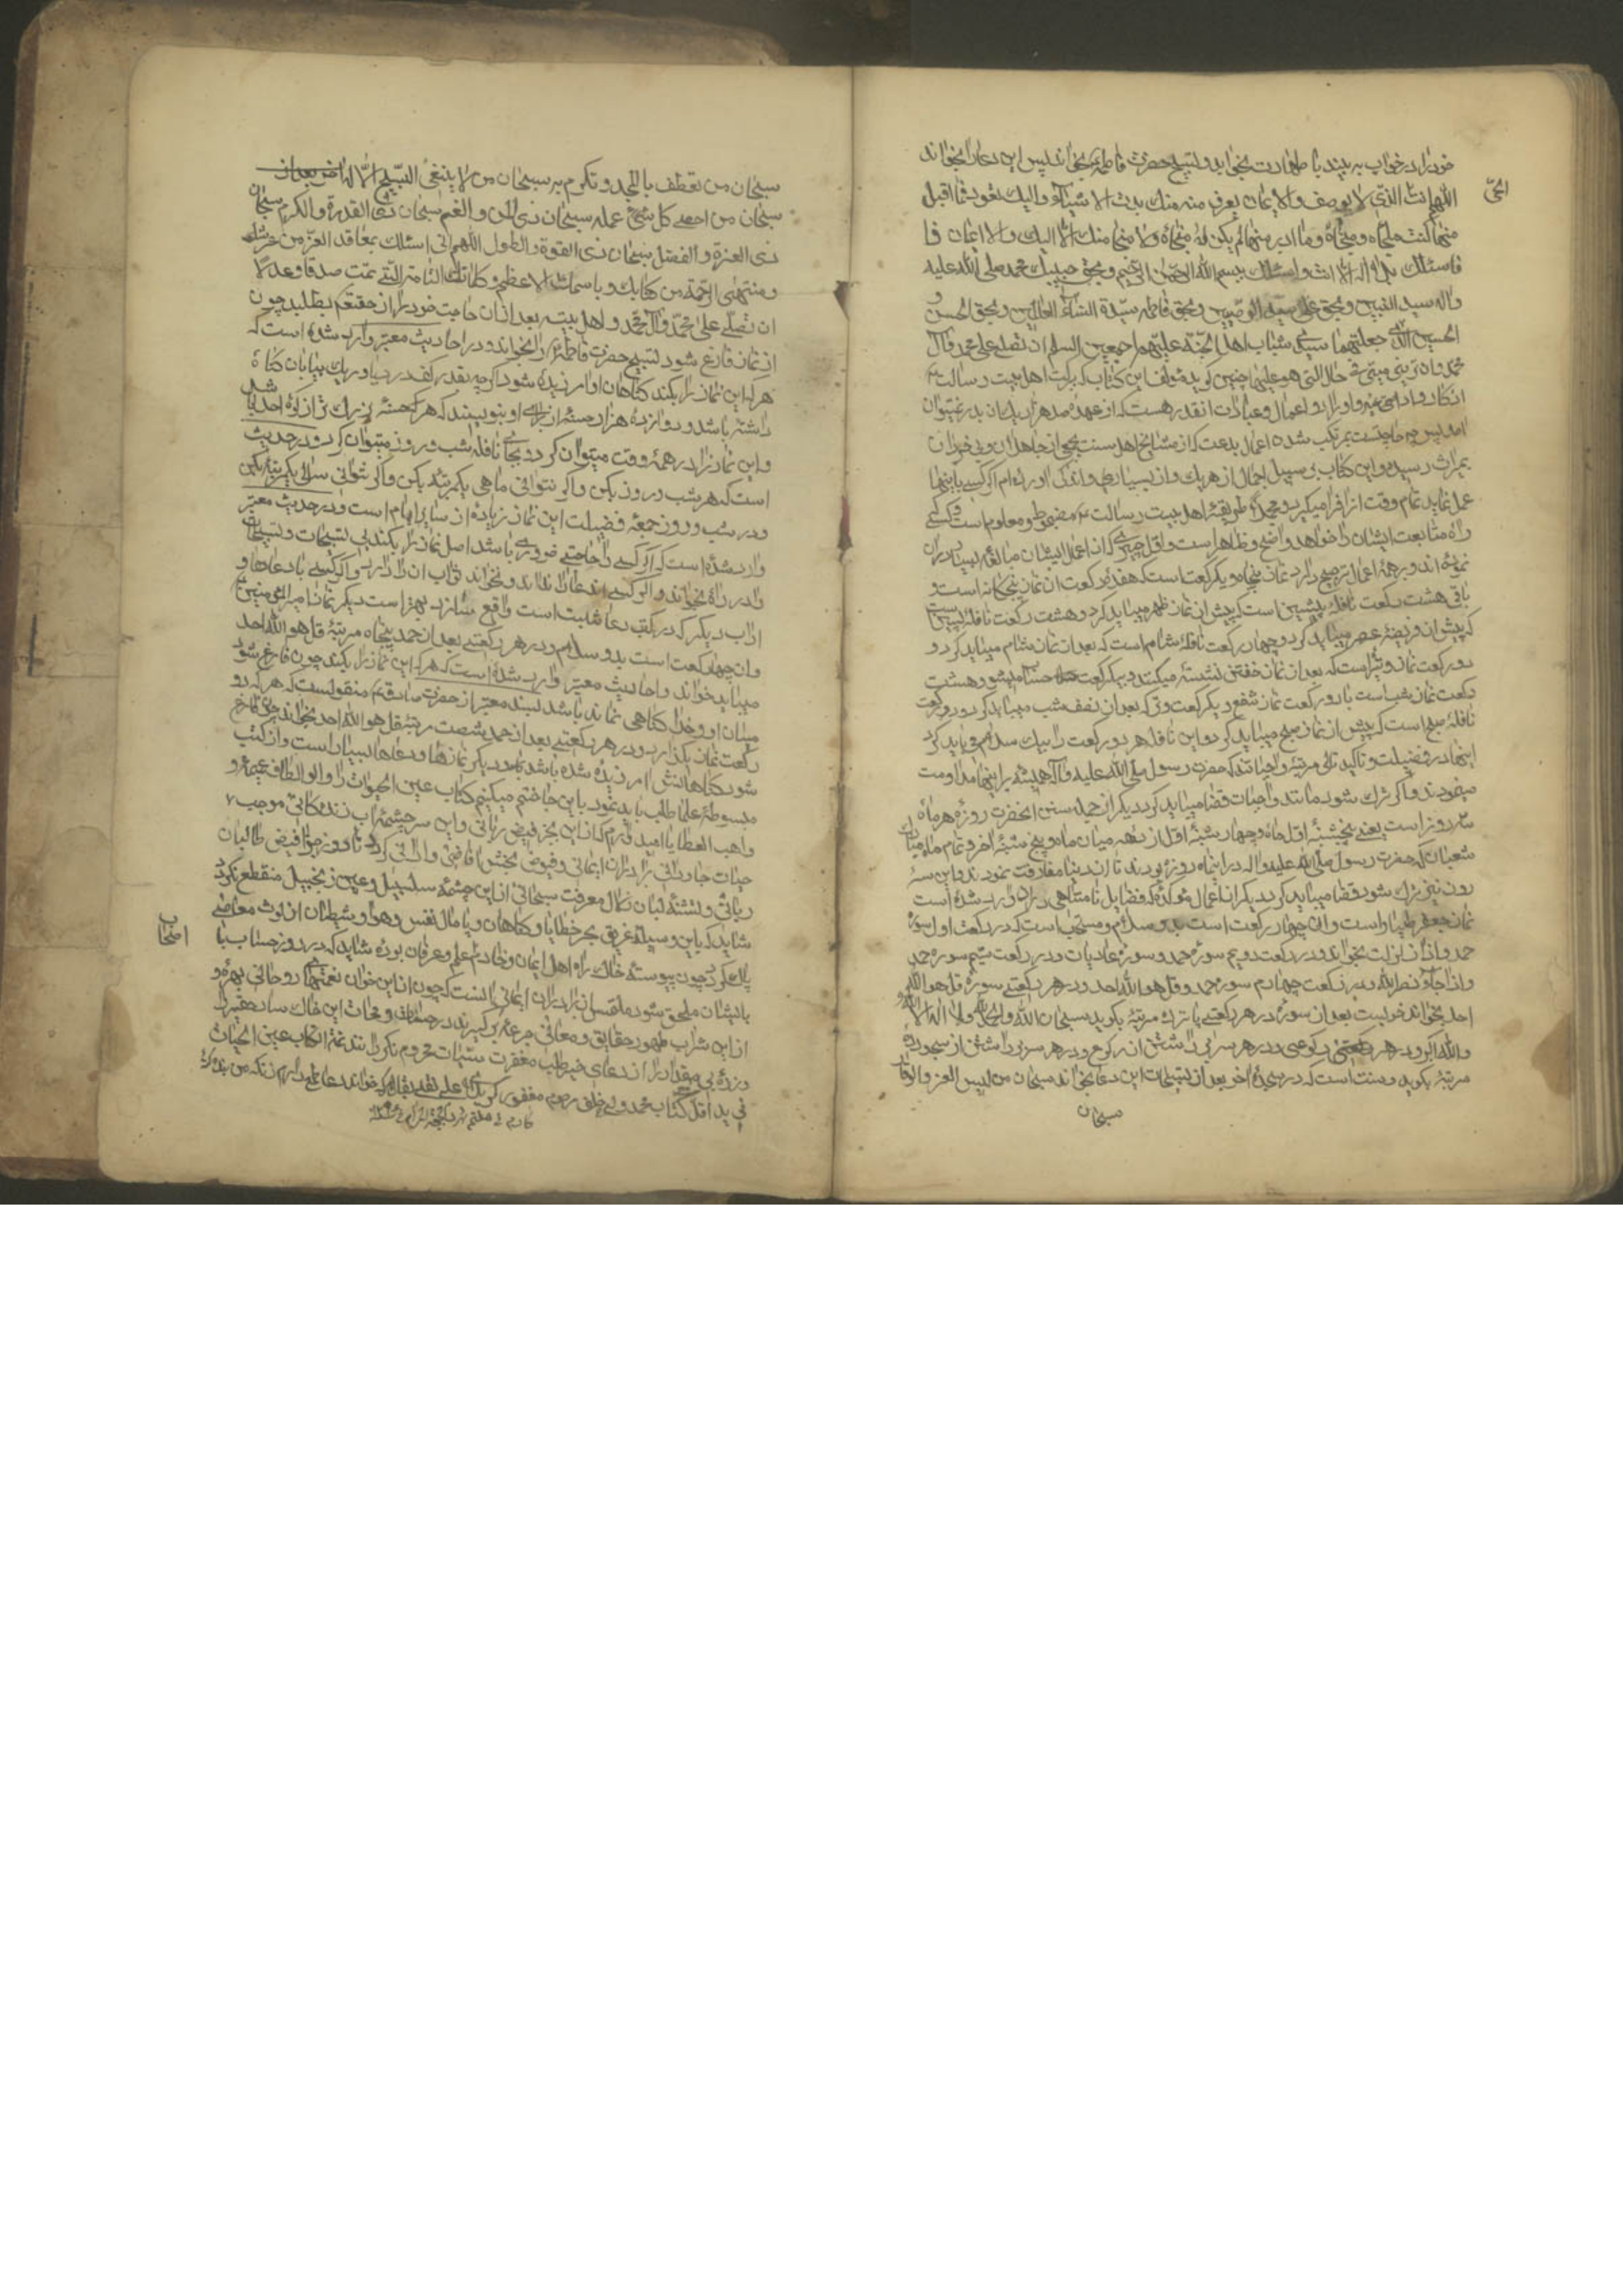 خود را در خواب به بیند با طهارت بخوابد و تسبیح حضرت فاطمه بخواند پس این دعا را بخواند
اللهم انت الذی لا یوصف والایمان یعرف منه منک بدت الاشیآء والیک تعود فما اقبل
الحی
منها کنت ملجاه ومنجاه وما ادبر منها لم یکن له منجاه ولا منجا منک الا الیک
فاسئلک بلا اله الا انت واسئلک ببسم الله الرحمن الرحیم وبحق حبیبک محمد صلی الله علیه
واله سید النبیین وبحق علی سید الوصیین وبحق فاطمه سیدة النساء العالمین وبحق الحسن و
الحسین الذی جعلتهما سیدی شباب اهل الجنة علیهم اجمعین السلم ان تصلی علی محمد وآل
محمد وان ترینی میتی فی حال التی هو علیها چنین کوید مؤلف این کتاب که برکت اهل بیت رسالت
اذکار و ادعیه و اوراد و اعمال و عبادات انقدر هست که از عهده صد هزار یک ان بدر نمیتوان
امد پس چه حاجتست بمرتکب شدن اعمال بدعت که از مشایخ اهل سنت بجمعی از جاهلان وبی خبران
بمیراث رسیده و این کتاب بر سبیل اجمال از هر یک و از بسیار اندکی اورده ام اکر کسی باینها
عمل نماید تمام وقت او را فرا میکیرد و طریقه اهل بیت رسالت مضبوط و معلوم است و کسی
راه متابعت ایشان را خواهد واضح و ظاهر است واول چیزی که از اعمال ایشان مبالغه بسیار دران
نموده اند و بر همه اعمال ترجیح دارد نماز پنجاه و یکرکعت است که هفده رکعت ان نماز پنجکانه است و
باقی هشت رکعت نافله پیشین است که پیش از نماز ظهر میباید کرد و هشت رکعت نافله پسین
که پیش از فریضه عصر میباید کرد و چهار رکعت نافله شام است که بعد از نماز شام میباید کرد و
دو رکعت نماز وتیر است که بعد از نماز خفتن نشسته میکنند و بیکرکعت حساب میشود و هشت
رکعت نماز شب است با دو رکعت نماز شفع و یکرکعت وتر که بعد از نصف شب میباید کرد و دو رکعت
نافله صبح است که پیش از نماز صبح میباید کرد و این نافلها هر دو رکعت را بیک سلام میباید کرد
اینها در فضیلت و تاکید تالی مرتبه واجباتند که حضرت رسول صلی الله علیه وآله همیشه براینها مداومت
میفرمودند و اکر ترک شود مانند واجبات قضا میباید کرد دیکر از جمله سنن انحضرت روزه هر ماه
سه روز است یعنی پنجشنبه اول ماه و چهارشنبه اول از دهه میان ماه و پنجشنبه آخر و تمام ماه
شعبان که حضرت رسول صلی الله علیه واله در اینماه روزه بودند تا از دنیا مفارقت نمودند و این سه
روز نیز ترک شود قضا میباید کرد دیکر از اعمال مؤکده که فضایل نامتناهی در ان وارد شده است
نماز جعفر طیار است و ان چهار رکعت است بدو سلام و مستحب است که در رکعت اول سوره
حمد و اذا زلزلت بخواند و در رکعت دویم سوره حمد و سوره عادیات و در رکعت سیم سوره حمد
و اذا جآء نصرالله و در رکعت چهارم سوره حمد و قل هو الله احد و در هر رکعتی سوره قل هو الله
احد بخواند خوبست بعد از سوره در هر رکعتی پانزده مرتبه بکوید سبحان الله والحمدلله ولا اله الا الله
والله اکبر و در هر رکوعی و در هر سر برداشتن از رکوع و در هر سجودی و در هر سر برداشتن از سجود ده
مرتبه بکوید و سنت است که در سجده آخر بعد از تسبیحات این دعا بخواند سبحان من لبس العز والوقار
سبحان
سبحان من تعطف بالمجد وتکرم به سبحان من لا ینبغی التسبیح الا له
سبحان من احصی کل شیئ علمه سبحان ذی المن والنعم سبحان ذی القدرة والکرم سبحان
ذی العزة والفضل سبحان ذی القوة والطول اللهم انی اسئلک بمعاقد العز من عرشک
ومنتهی الرحمة من کتابک وباسمک الاعظم وکلماتک التامة التی تمت صدقا وعدلا
ان تصلی علی محمد وآل محمد واهل بیته بعد از ان حاجت خود را از حقتعالی بطلبد چون
از نماز فارغ شود تسبیح حضرت فاطمه را بخواند و در احادیث معتبر وارد شده است که
هر که این نماز را بکند کناهان او امرزیده شود اکرچه بقدر کف دریا و ریک بیابان کناه
داشته باشد و دوازده هزار حسنه از برای او بنویسند که هر حسنه بزرک تر از کوه احد باشد
و این نماز را در همه وقت میتوان کرد و بجای نافله شب و روز میتوان کرد و در حدیث
است که هر شب و روز بکن و اکر نتوانی ماهی یکمرتبه بکن و اکر نتوانی سالی یکمرتبه بکن
و در شب و روز جمعه فضیلت این نماز زیاده از سایر ایام است و در حدیث معتبر
وارد شده است که اکر کسی را حاجتی ضروری باشد اصل نماز را بکند بی تسبیحات و تسبیحات
را در راه بخواند و اکر کسی اندعا را نداند و نخواند ثواب ان را دارد و اکر کسی با دعاها و
اداب دیکر که در کتب دعا مثبت است واقع سازد بهتر است دیکر نماز امیر المؤمنین
و ان چهار رکعت است بدو سلام و در هر رکعتی بعد از حمد پنجاه مرتبه قل هو الله احد
میباید خواند و احادیث معتبر وارد شده است که هر که این نماز را بکند چون فارغ شود
میان او و خدا کناهی نمانده باشد بسند معتبر از حضرت صادق منقولست که هر که دو
رکعت نماز بکذارد و در هر رکعتی بعد از حمد شصت مرتبه قل هو الله احد بخواند چون فارغ
شود کناهانش امرزیده شده باشد و دیکر نمازها و دعاها بسیار است و از کتب
مبسوطه علما طلب باید نمود باین جا ختم میکنیم کتاب عین الحیوة را و از الطاف عمیمه
واهب العطایا امید دارم که از این بحر فیض ربانی و این سر چشمه اب زندکانی موجب
حیات جاودانی برادران ایمانی و فیوض بخش کردد تا روز جزا فیض طالبان
ربانی و تشنه لبان زلال معرفت سبحانی از این چشمه سلسبیل و عین زنجبیل منقطع نکردد
شاید که باین وسیله غریق بحر خطایا و کناهان و پامال نفس و هوا و شیطان از لوث معاصی
پاک کردد چون پیوسته خاک راه اهل ایمان و خادم علم و عرفان بوده شاید که در روز حساب با
اصحاب
بایشان ملحق شود ملتمس از برادران ایمانی انست که چون از این خوان نعمتهای روحانی بهره و
از این شراب طهور حقایق و معانی جرعه برکیرند در حیات و ممات این خاکسار حقیر
و ذره بی مقدار را از دعای خیر و طلب مغفرت سیئات محروم نکردانند تمة الکتاب عین الحیات